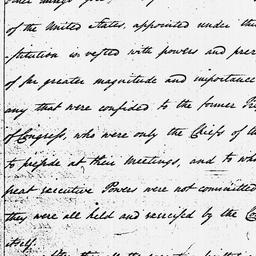 other things
of the United States, appointed under the
stitution is vested with powers and prer
of far greater magnitude and importance
any that were confided to the former Pre
of Congress, who were only the Chiefs of th
to preside at their Meetings, and to who
great executive Powers were not committed
they were all held and exercised by the Co
itself.